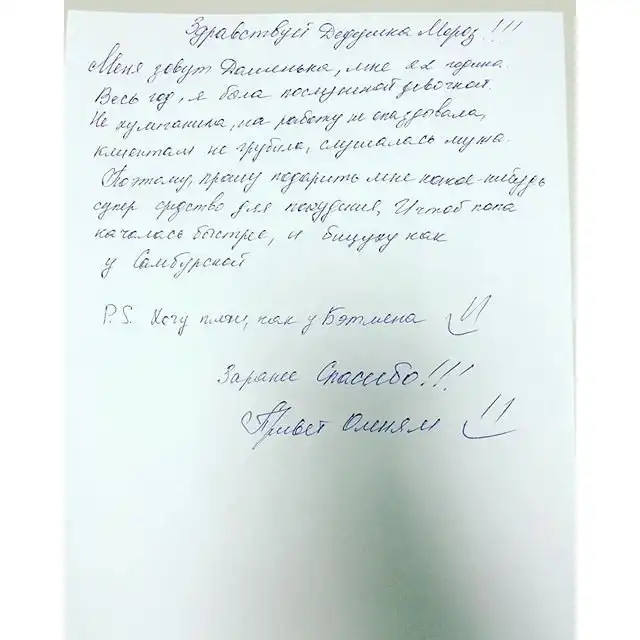 Здравствуй Дедушка Мороз!!!
Меня зовут Дашенька, мне година.
Весь год, я была послушной девочкой.
Не хулиганила, на работу не опаздывала,
клиентам не грубила, слушалась мужа.
Поэтому, прошу подарить мне какое-нибудь
супер средство для похудения, И чтоб попа
качалась быстрее, и бицуху как
у Самбурской
P.S. Хочу плащ, как у Бэтмена
Заранее Спасибо!!!
Привет Оленям